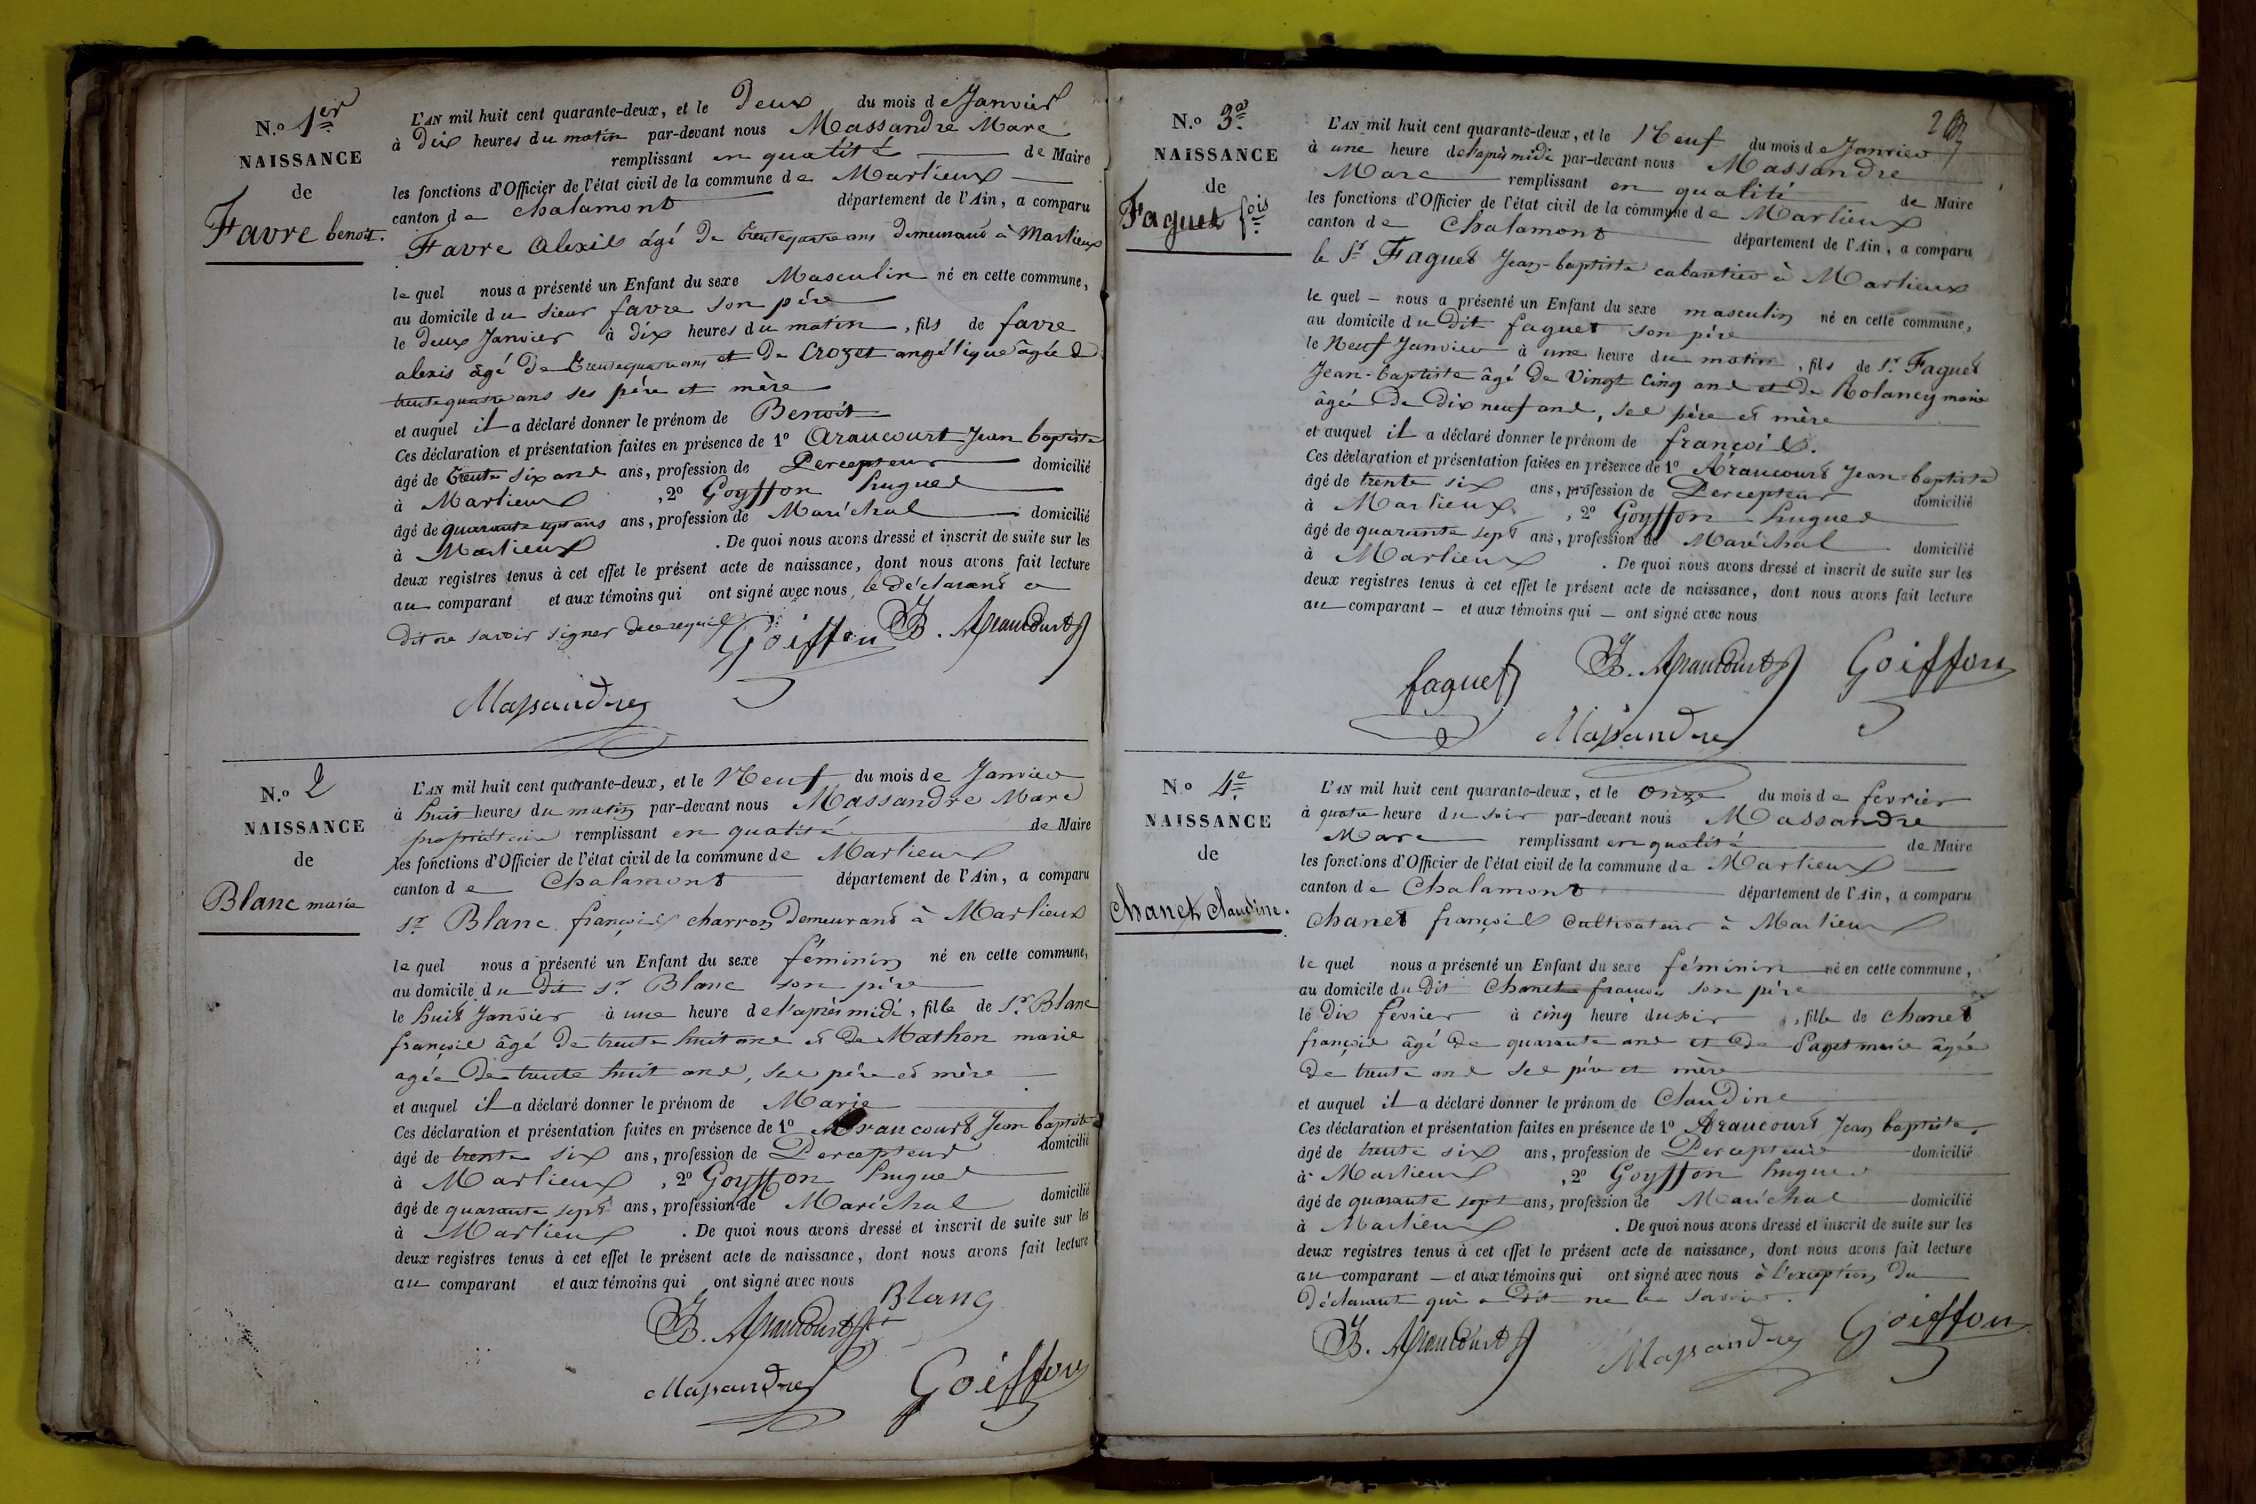 N.o 1er
NAISSANCE
de
Favre benoit.
L'AN mil huit cent quarante-deux, et le Deux du mois de Janvier
à Dix heures du matin par-devant nous Massandre Marc
remplissant en qualité de Maire
les fonctions d'Officier de l'état civil de la commune de Marlieux
canton de chalamont département de l'Ain, a comparu
Favre Alexis âgé de trente quatre ans demeurant à Marlieux
le quel nous a présenté un Enfant du sexe Masculin né en cette commune,
au domicile du sieur favre son père
le deux Janvier à dix heures du matin, fils de favre
alexis âgé de trente quatre ans et de Crozet angélique âgée de
trente quatre ans ses père et mère
et auquel il a déclaré donner le prénom de Benoit
Ces déclaration et présentation faites en présence de 1o Araucourt Jean baptiste
âgé de trente six ans ans, profession de Percepteur domicilié
à Marlieux, 2o Goyffon hugues
âgé de quarante sept ans ans, profession de Maréchal domicilié
à Marlieux. De quoi nous avons dressé et inscrit de suite sur les
deux registres tenus à cet effet le présent acte de naissance, dont nous avons fait lecture
au comparant et aux témoins qui ont signé avec nous, le déclarant a
dit ne savoir signer de ce requis
Goiffon JB. Araucourt
Massandre
N.o 2
NAISSANCE
de
Blanc marie
L'AN mil huit cent quarante-deux, et le Neuf du mois de Janvier
à huit heures du matin par-devant nous Massandre Marc
propriétaire remplissant en qualité de Maire
les fonctions d'Officier de l'état civil de la commune de Marlieux
canton de Chalamont département de l'Ain, a comparu
sr Blanc françois charron demeurant à Marlieux
le quel nous a présenté un Enfant du sexe féminin né en cette commune,
au domicile du dit sr Blanc son père
le huit Janvier à une heure de l'après midi, fille de Sr Blanc
françois âgé de trente huit ans et de Mathon marie
agée de trente huit ans, ses père et mère
et auquel il a déclaré donner le prénom de Marie
Ces déclaration et présentation faites en présence de 1o Araucourt Jean baptiste
âgé de trente six ans, profession de Percepteur domicilié
à Marlieux, 2o Goyffon hugues
âgé de quarante sept ans, profession de Maréchal domicilié
à Marlieux. De quoi nous avons dressé et inscrit de suite sur les
deux registres tenus à cet effet le présent acte de naissance, dont nous avons fait lecture
au comparant et aux témoins qui ont signé avec nous
Blanc
JB. Araucourt
Massandre Goiffon
N.o 3e
NAISSANCE
de
Faguet fois
L'AN mil huit cent quarante-deux, et le Neuf du mois de Janvier
à une heure de l'après midi par-devant nous Massandre
Marc remplissant en qualité de Maire
les fonctions d'Officier de l'état civil de la commune de Marlieux
canton de Chalamont département de l'Ain, a comparu
le Sr Faguet Jean-baptiste cabaretier à Marlieux
le quel - nous a présenté un Enfant du sexe masculin né en cette commune,
au domicile du Dit faguet son père
le Neuf Janvier à une heure du matin, fils de Sr Faguet
Jean-baptiste âgé de vingt cinq ans et de Rolancy marie
âgée de dix neuf ans, ses père et mère
et auquel il a déclaré donner le prénom de françois.
Ces déclaration et présentation faites en présence de 1o Araucourt Jean-baptiste
âgé de trente six ans, profession de Percepteur domicilié
à Marlieux, 2o Goyffon hugues
âgé de quarante sept ans, profession de Maréchal domicilié
à Marlieux. De quoi nous avons dressé et inscrit de suite sur les
deux registres tenus à cet effet le présent acte de naissance, dont nous avons fait lecture
au comparant - et aux témoins qui - ont signé avec nous
faguet JB. Araucourt Goiffon
Massandre
N.o 4e
NAISSANCE
de
Chanet Claudine.
L'AN mil huit cent quarante-deux, et le onze du mois de fevrier
à quatre heure du soir par-devant nous Massandre
Marc remplissant en qualité de Maire
les fonctions d'Officier de l'état civil de la commune de Marlieux
canton de Chalamont département de l'Ain, a comparu
Chanet françois Cultivateur à Marlieux
le quel nous a présenté un Enfant du sexe féminin né en cette commune,
au domicile du Dit Chanet françois son père
le dix février à cinq heure du soir, fille de chanet
françois âgé de quarante ans et de Paget marie âgée
de trente ans ses père et mère
et auquel il a déclaré donner le prénom de Claudine
Ces déclaration et présentation faites en présence de 1o Araucourt Jean baptiste.
âgé de trente six ans, profession de Percepteur domicilié
à Marlieux, 2o Goyffon hugues
âgé de quarante sept ans, profession de Maréchal domicilié
à Marlieux. De quoi nous avons dressé et inscrit de suite sur les
deux registres tenus à cet effet le présent acte de naissance, dont nous avons fait lecture
au comparant - et aux témoins qui ont signé avec nous à l'exception du
Déclarant qui a Dit ne le savoir.
JB. Araucourt Massandre Goiffon